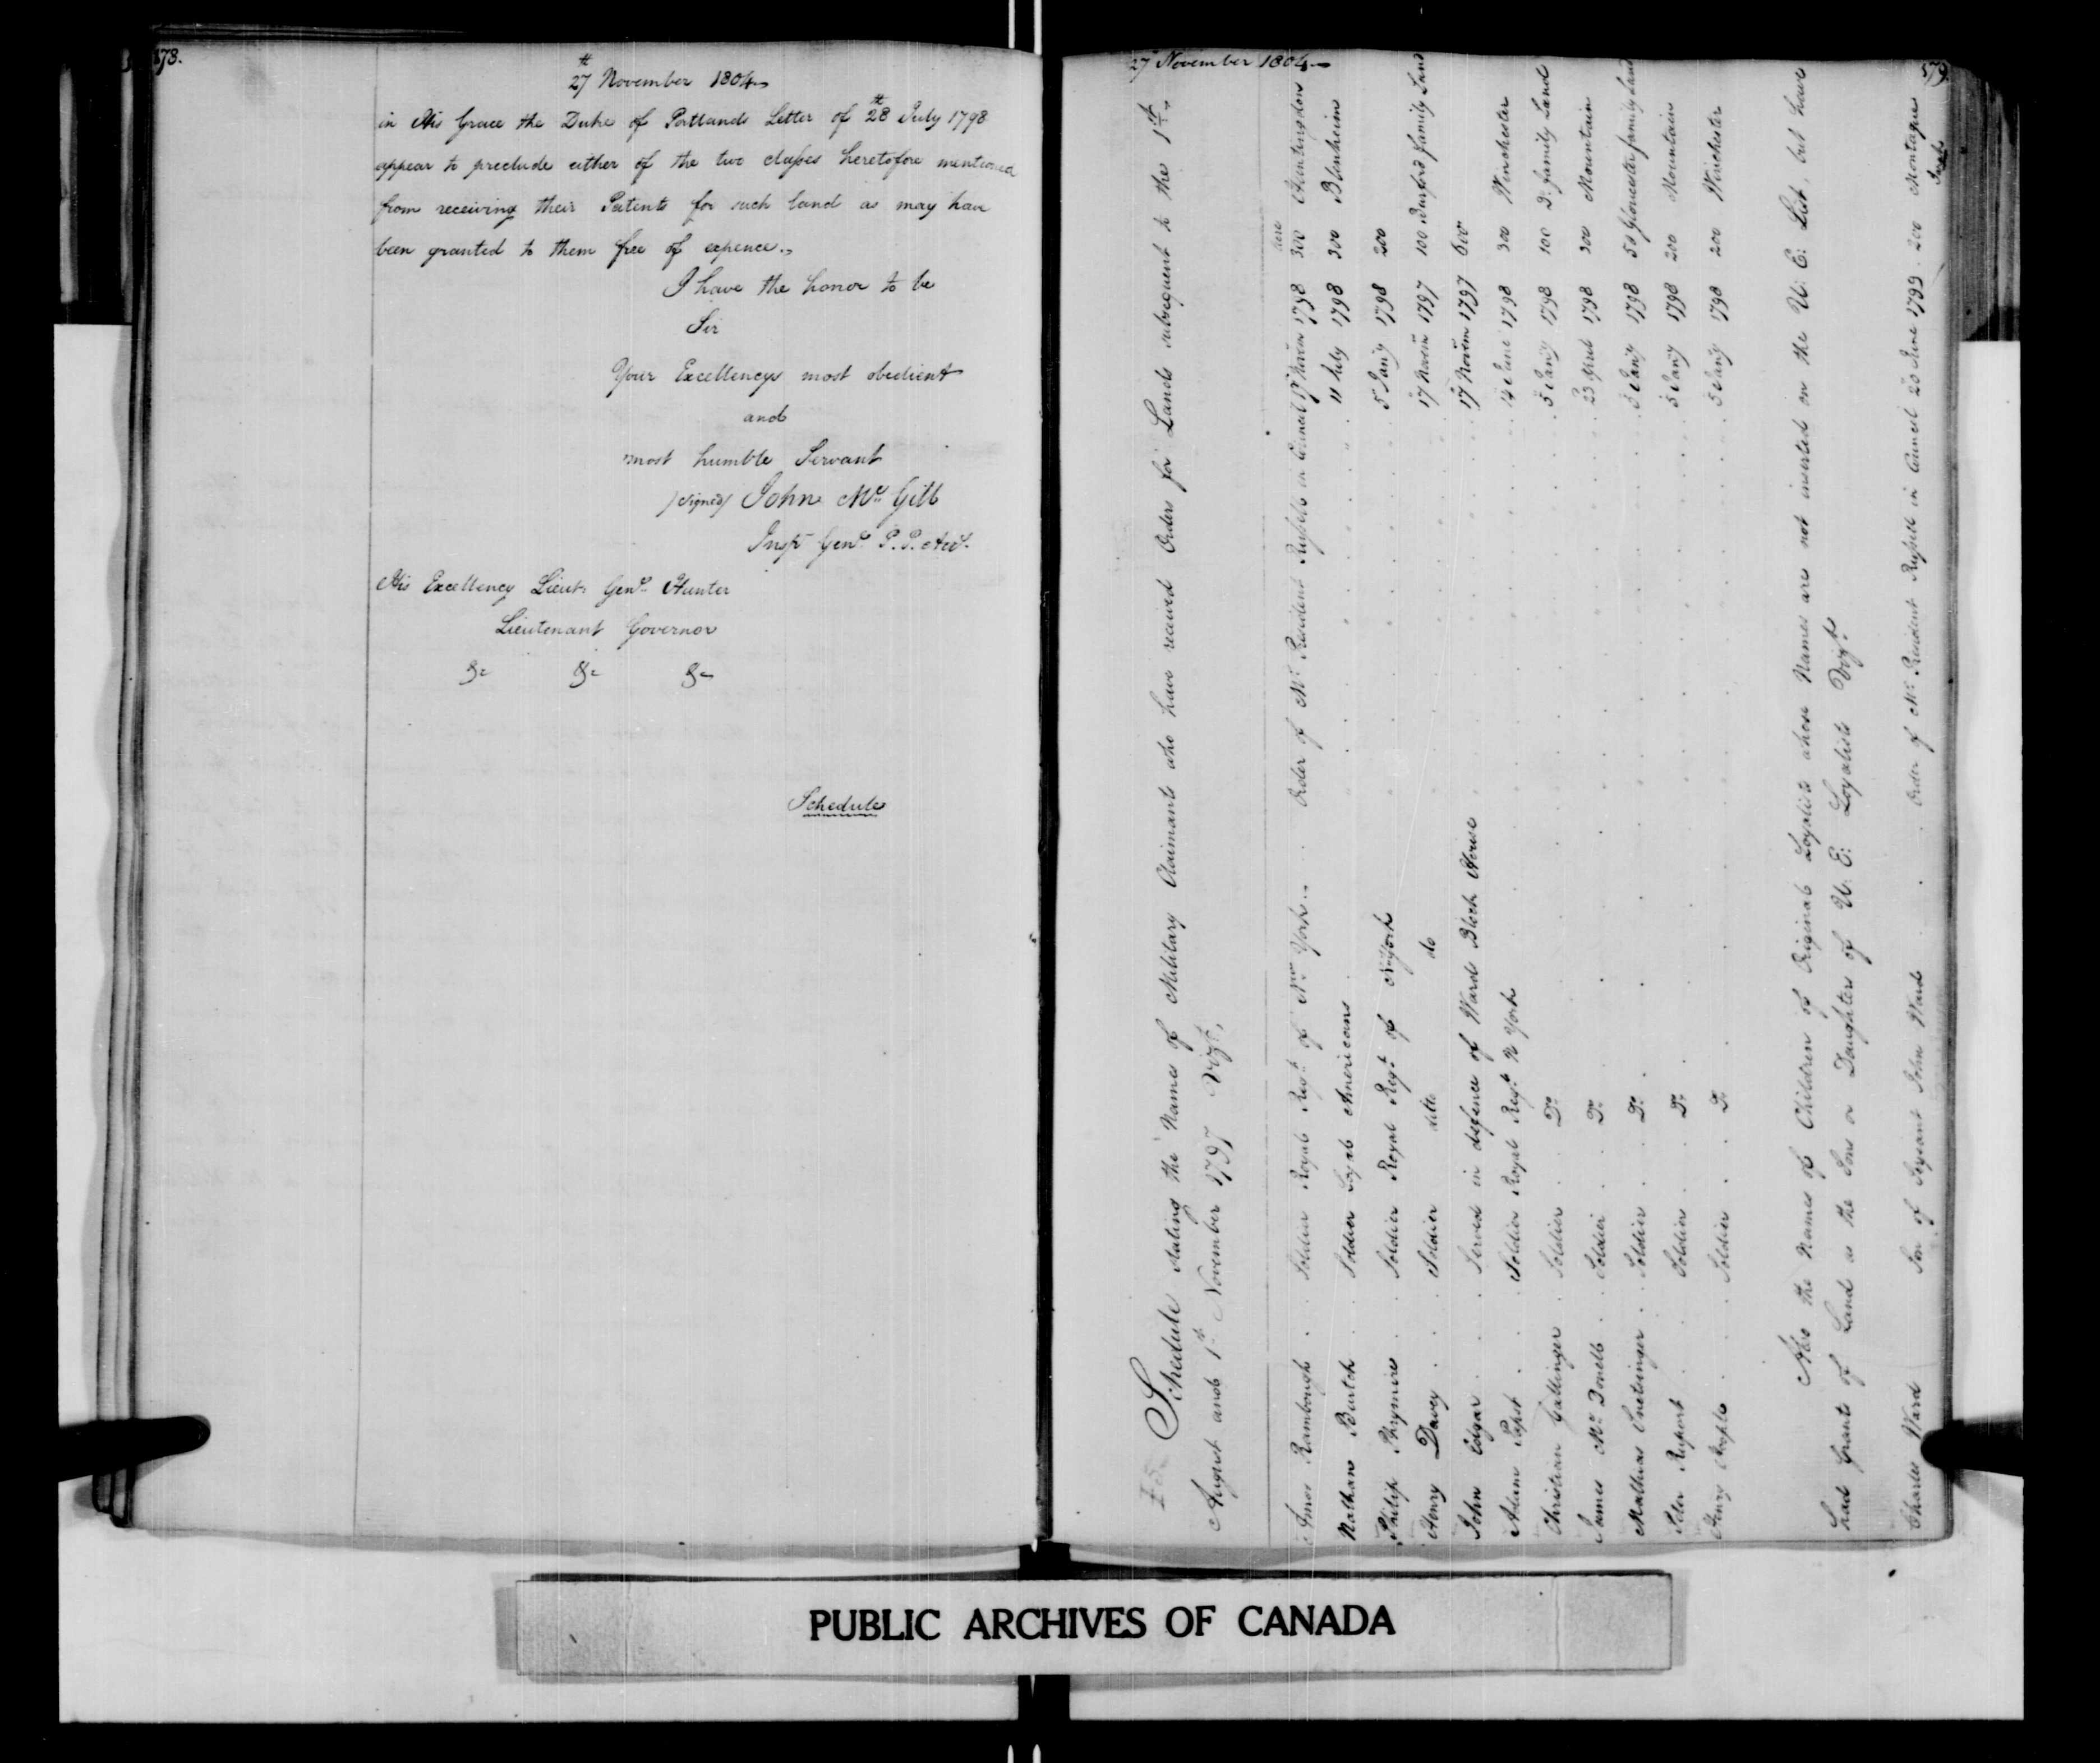 178.
27th November 1804
in His Grace the Duke of Portlands Letter of 28th July 1798
appear to preclude either of the two classes heretofore mentioned
from receiving their Patents for such land as may have
been granted to them free of expence.
I have the honor to be
Sir
Your Excellencys most obedient
and
most humble Servant
(signed) John Mc Gill
Inspr Genl P. P. Acts.
His Excellency Lieut. Genl Hunter
Lieutenant Governor
&c &c &c
Schedule
27 November 1804
579.
Schedule stating the Names of Military Claimants who have received Orders for Lands subsequent to the 1st
August and 1st November 1797 Vizt.
Acres
Amos Rambough . . Soldier Royal Regt of New York . . Order of Mr President Russell in Council 17 Novem 1798 300 Huntingdon
Nathan Burtch . . Soldier Loyal Americans . . 11 July 1798 300 Blenheim
Philip Phymire . . Soldier Royal Regt of N York . . 5 Jany 1798 200
Henry Davey . . Soldier ditto do . . 17 Novem 1797 100 Burford family Land
John Edgar . . Served in defence of Wards Block House . . 17 Novem 1797 600
Adam Papst . . Soldier Royal Regt N York . . 14 June 1798 300 Winchester
Christian Gallinger . Soldier . . Do . . 5 Jany 1798 100 Do family Land
James Mc Donell . Soldier . . Do . . 23 April 1798 300 Mountain
Mathias Snetsinger . Soldier . . Do . . 5 Jany 1798 50 Gloucester family Land
Peter Rupert . . Soldier . . Do . . 5 Jany 1798 200 Mountain
Henry . . Soldier . . Do . . 5 Jany 1798 200 Winchester
Also the Names of Children of Original Loyalists whose Names are not inserted on the U: E: List, but have
had Grants of Land as the Sons or Daughters of U: E: Loyalists Vizt.
Charles Ward Son of Serjeant John Ward . . Order of Mr President Russell in Council 20 June 1799 . 200 Montague
PUBLIC ARCHIVES OF CANADA